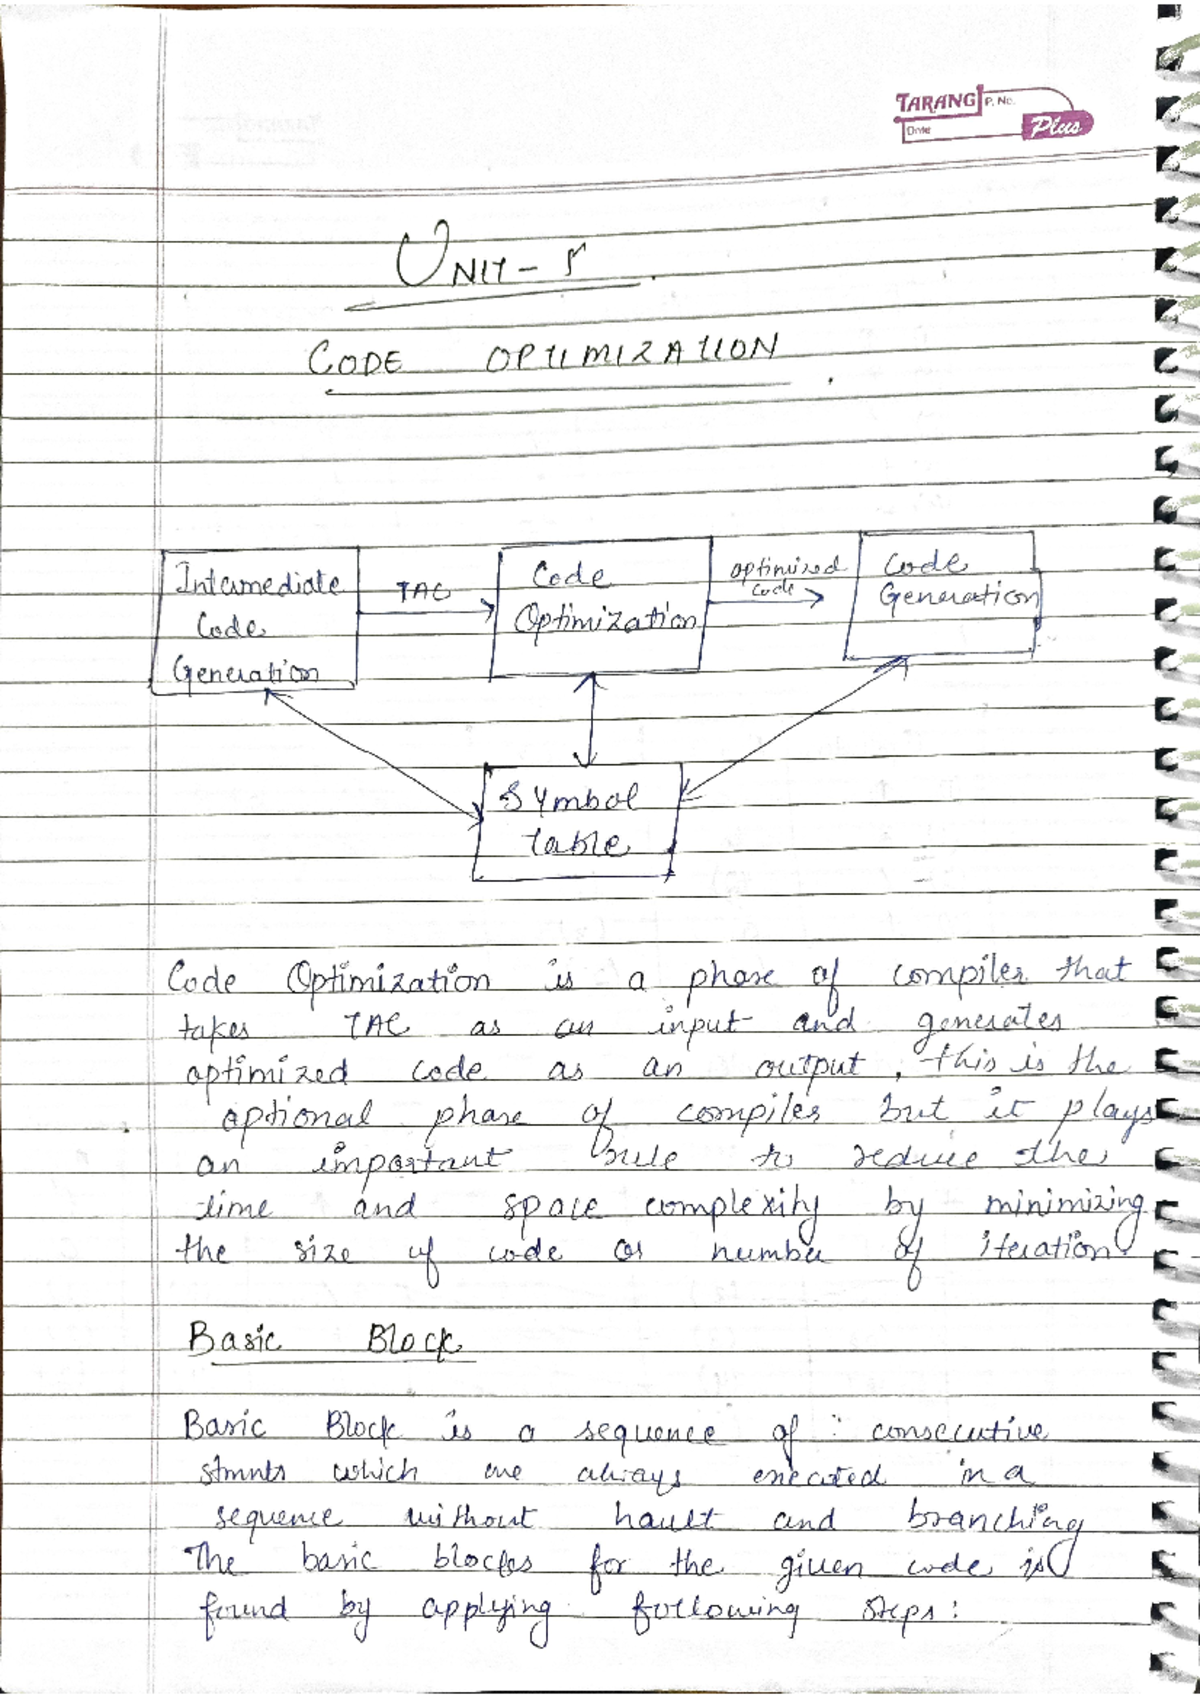 TARANG P. No.
Date Plus
UNIT - 5
CODE OPTIMIZATION
Intermediate
Code
Generation
TAC
Code
Optimization
optimized
code
Code
Generation
Symbol
table
Code Optimization is a phase of compiler that
takes TAC as an input and generates
optimized code as an output, this is the
optional phase of compiler but it plays
an important rule to reduce the
time and space complexity by minimizing
the size of code or number of iteration
Basic Block
Basic Block is a sequence of consecutive
stmnts which are always executed in a
sequence without hault and branching
The basic blockes for the given code is
found by applying following steps: